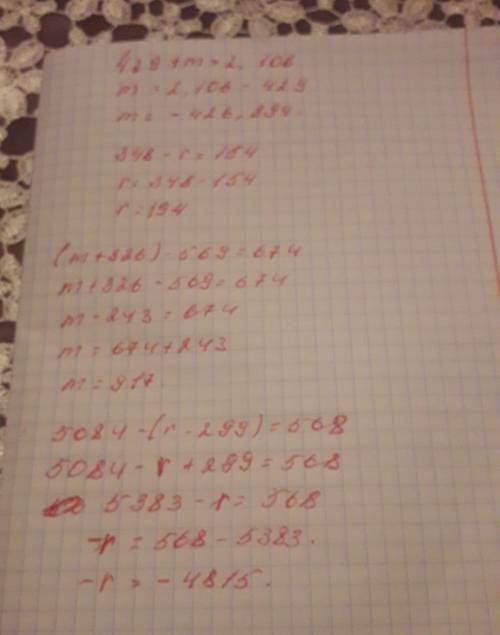 429 + m = 2, 106
m = 2, 106 - 429
m = - 426, 894.
348 - r = 154
r = 348 - 154
r = 194
(m + 326) - 569 = 674
m + 326 - 569 = 674
m - 243 = 674
m = 674 + 243
m = 917
5084 - (r - 299) = 568
5084 - r + 299 = 568
5383 - r = 568
-r = 568 - 5383.
-r = - 4815.